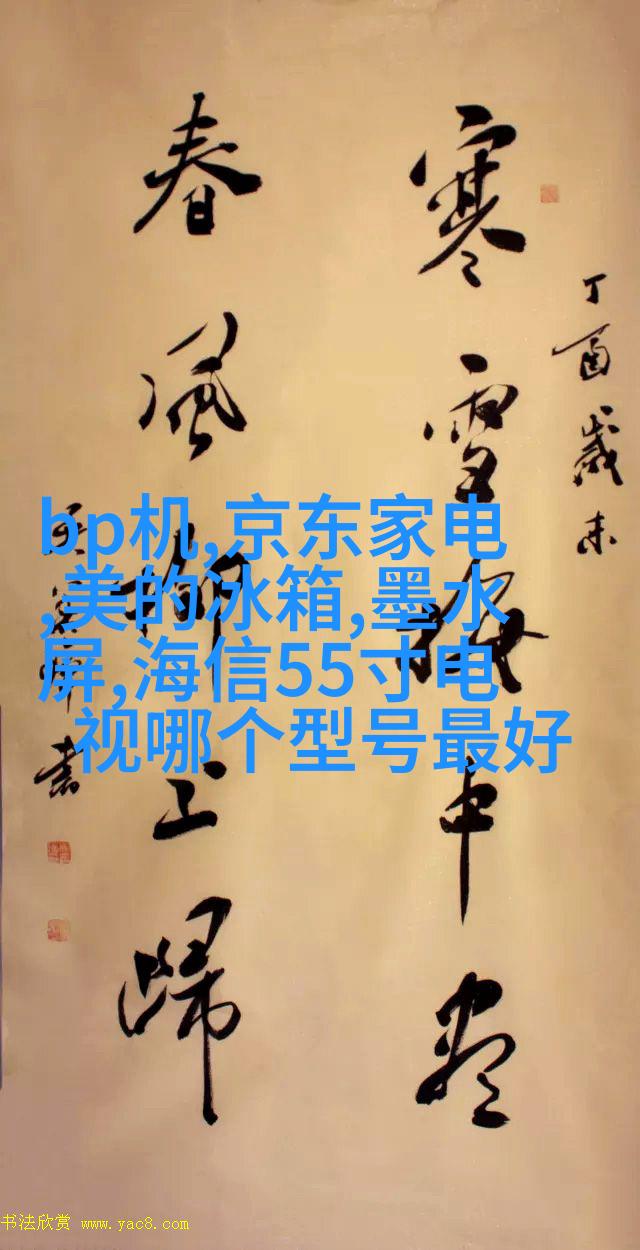 丁酉岁末
寒雪梅中尽
春风柳上归
书
bp机,京东家电
,美的冰箱,墨水
屏,海信55寸电
视哪个型号最好
书法欣赏 www.yac8.com